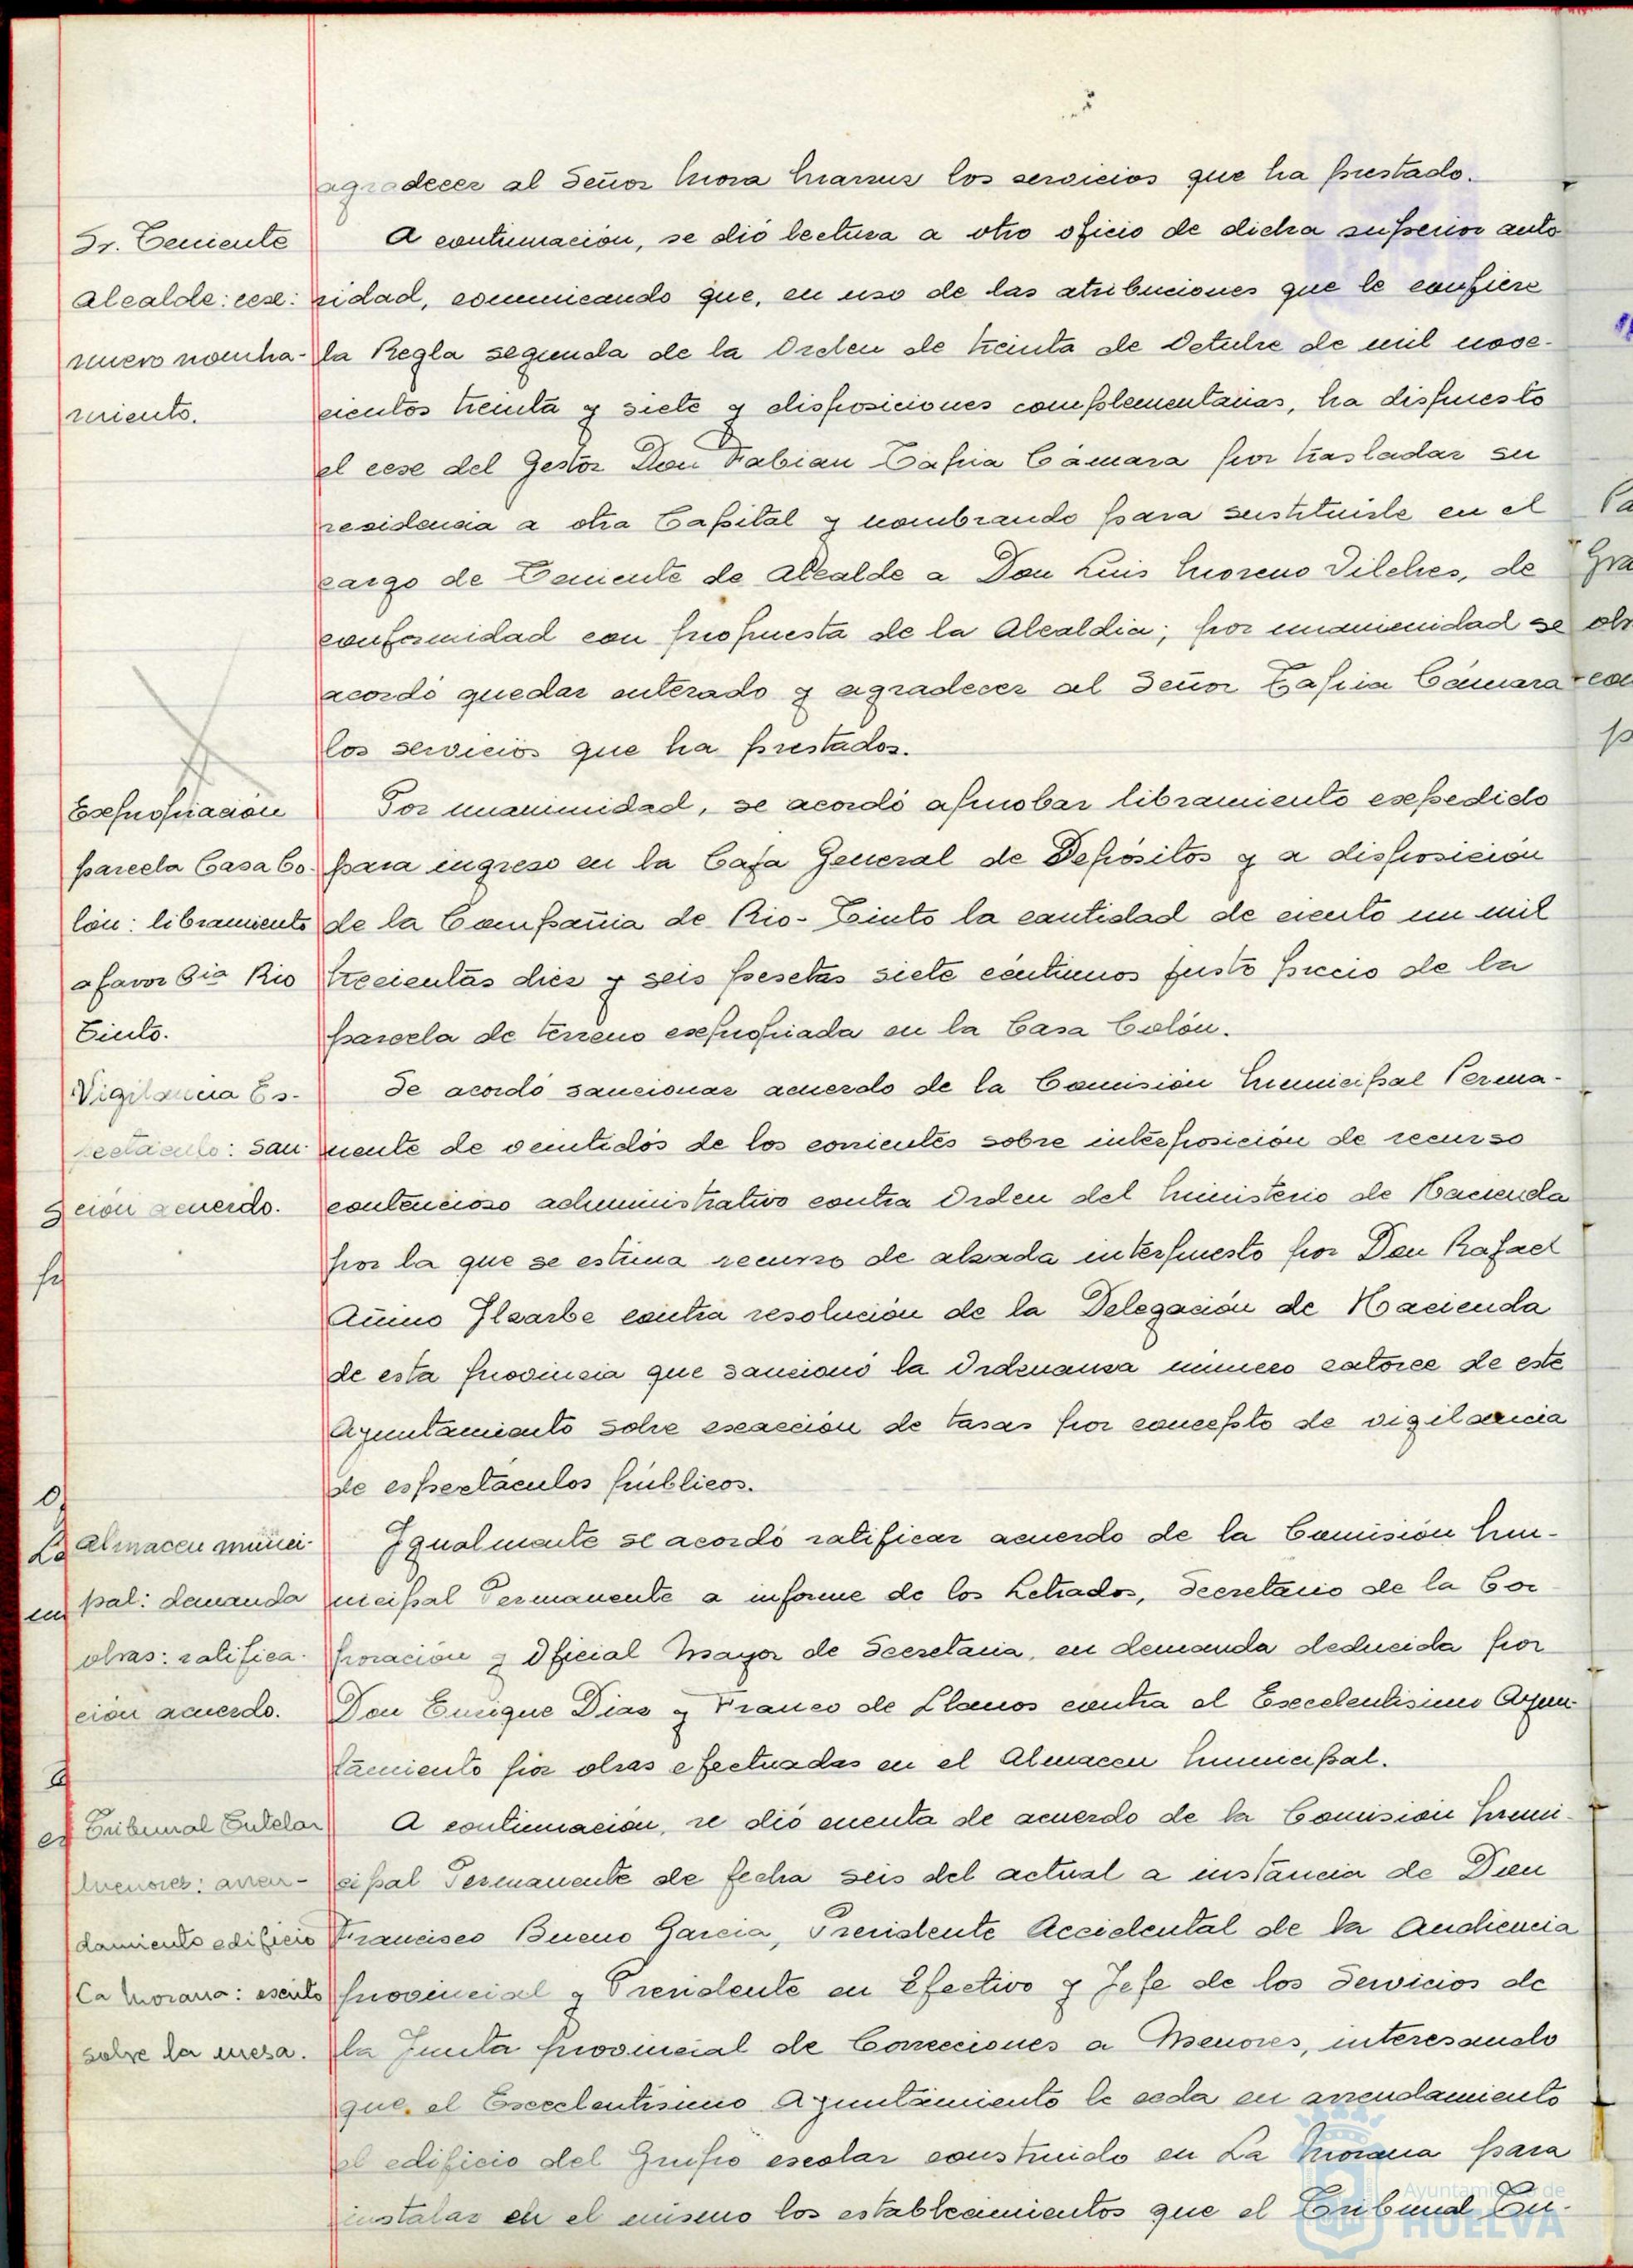 agradecer al Señor Mora Marrus los servicios que ha prestado.
Sr. Teniente
Alcalde: cese:
nuevo nombra-
miento.
A continuación, se dió lectura a otro oficio de dicha superior auto
ridad, comunicando que, en uso de las atribuciones que le confiere
la Regla segunda de la Orden de treinta de Octubre de mil nove-
cientos treinta y siete y disposiciones complementarias, ha dispuesto
el cese del Gestor Don Fabian Tapia Cámara por trasladar su
residencia a otra Capital y nombrando para sustituirle en el
cargo de Teniente de Alcalde a Don Luis Moreno Vilches, de
conformidad con propuesta de la Alcaldia; por unanimidad se
acordó quedar enterado y agradecer al Señor Tapia Cámara
los servicios que ha prestados.
Expropiación
parcela Casa Co-
lón: libramiento
a favor Cia Rio
Tinto.
Por unanimidad, se acordó aprobar libramiento expedido
para ingreso en la Caja General de Depósitos y a disposición
de la Compañia de Rio-Tinto la cantidad de ciento un mil
trecientas diez y seis pesetas siete céntimos justo precio de la
parcela de terreno expropiada en la Casa Colón.
Vigilancia Es-
pectáculo: san-
ción acuerdo.
Se acordó sancionar acuerdo de la Comisión Municipal Perma-
nente de veintidós de los corrientes sobre interposición de recurso
contencioso administrativo contra Orden del Ministerio de Hacienda
por la que se estima recurso de alzada interpuesto por Don Rafael
Añino Ilzarbe contra resolución de la Delegación de Hacienda
de esta provincia que sancionó la Ordenanza número catorce de este
Ayuntamiento sobre exacción de tasas por concepto de vigilancia
de espectáculos públicos.
Almacen munici-
pal: demanda
obras: ratifica-
ción acuerdo.
Igualmente se acordó ratificar acuerdo de la Comisión Mu-
nicipal Permanente a informe de los Letrados, Secretario de la Cor
poración y Oficial Mayor de Secretaria, en demanda deducida por
Don Enrique Diaz y Franco de Llanos contra el Excelentisimo Ayun-
tamiento por obras efectuadas en el Almacen Municipal.
Tribunal Tutelar
Menores: arren-
damiento edificio
La Morana: escrito
sobre la mesa.
A continuación, se dió cuenta de acuerdo de la Comisión Muni-
cipal Permanente de fecha seis del actual a instancia de Don
Francisco Bueno Garcia, Presidente Accidental de la Audiencia
provincial y Presidente en Efectivo y Jefe de los Servicios de
la Junta provincial de Correcciones a Menores, interesando
que, el Excelentisimo Ayuntamiento le ceda en arrendamiento
el edificio del Grupo escolar construido en La Morana para
instalar en el mismo los establecimientos que el Tribunal Tu-
Ayuntamiento de
HUELVA